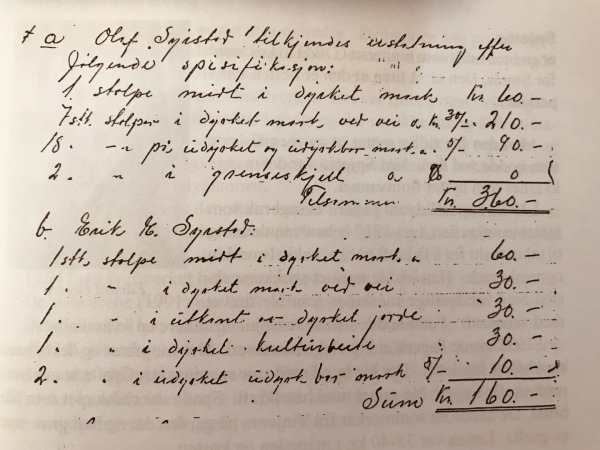 a Olaf Syrstad tilkjendes erstatning efter
følgende spisifikasjon:
1 stolpe midt i dyrket mark Kr. 60.-
7 stk. stolper i dyrket mark ved vei a kr. 30/- 210.-
18. -"- på udyrket og udyrkbar mark a 5/- 90.-
2. " i grenseskjell a 0 0
Tilsammen Kr. 360.-
b. Erik E. Syrstad.
1 stk. stolpe midt i dyrket mark a 60.-
1. " i dyrket mark ved vei 30.-
1. " i utkant av dyrket jorde 30.-
1. " i dyrket kulturbeite 30.-
2. " i udyrket udyrkbar mark 5/- 10.-
Sum Kr. 160.-